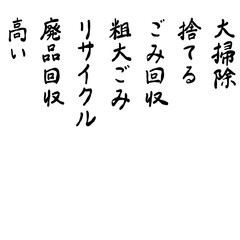 大掃除
捨てる
ごみ回収
粗大ごみ
リサイクル
廃品回収
高い